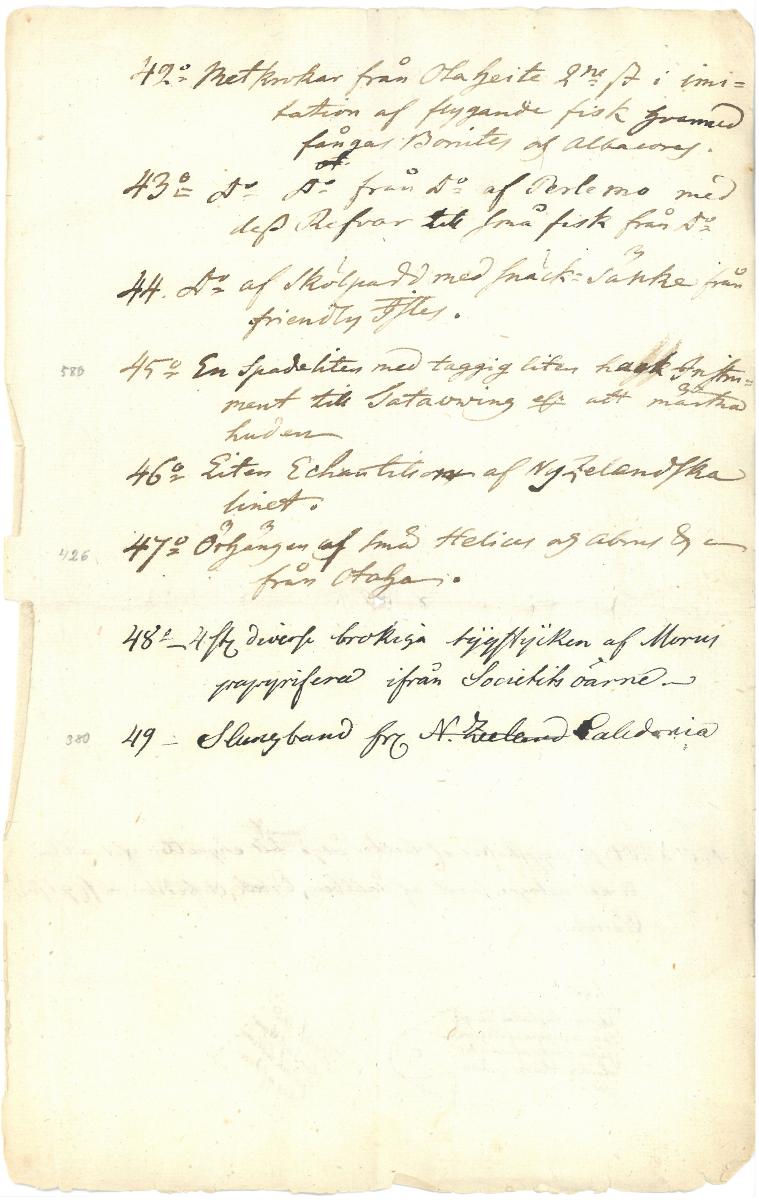 42º Metkrokar från Otaheite 2ne st i imi=
tation af flygande fisk hvarmed
fångas Bonites och Albacores.
43º Dº Dº från Dº af Perlemo med
deß Refvar till små fisk från Dº
44. Dº af Sköldpadd med snäck=sänke från
friendly Isles.
580 45º En Spade liten med taggig liten hack Instru=
ment till Tatawing att märka
huden
46º Liten Echantilion af Ny Zelandska
linet.
426 47º Örhängen af små Helices och Abrus &c
från Otaha.
48º 4 st diverse brokiga tygstycken af Morus
papyrifera ifrån Societets öarne.
380 49 – Slungband fr N. Zeeland Caledonia